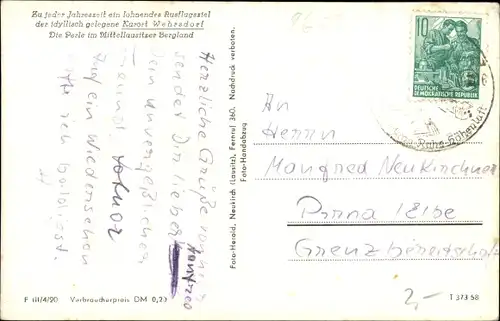 Zu jeder Jahreszeit ein lohnendes Ausflugsziel
der idyllisch gelegene Kurort Wehrsdorf
Die Perle im Mittellausitzer Bergland
Herzliche Grüße von hier
sendet Dir lieber Manfred
Dein unvergeßlicher
Freund
Auf ein Wiedersehen
Foto-Herold, Neukirch (Lausitz), Fernruf 360. Nachdruck verboten.
Foto-Handabzug
10
DEUTSCHE
DEMOKRATISCHE REPUBLIK
Ruhe - Höhenluft
An
Herrn
Manfred Neukirchner
Pirna / Elbe
Grenzbereitschaft
2,-
F III/4/20 Verbraucherpreis DM 0,20
T 373 58